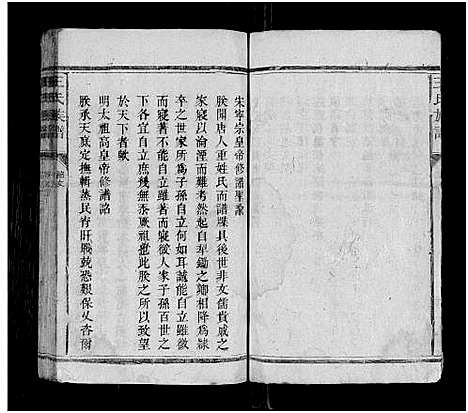 宋寧宗皇帝修譜聖諭
朕聞唐人重姓氏而譜牒具後世非文儒貴戚之
家寖以淪湮而難考然起自犁鋤之鄉相降為隸
卒之世家所為子孫自立何如耳誠能自立雖微
而著不能自立雖著而寖微人家子孫百世之
下各宜自立庶幾無忝厥祖此朕之所以致望
於天下者歟
明太祖高皇帝修譜詔
朕承天眷定撫輯蒸民宵旰駿兢恐艱保乂咨爾
王氏族譜